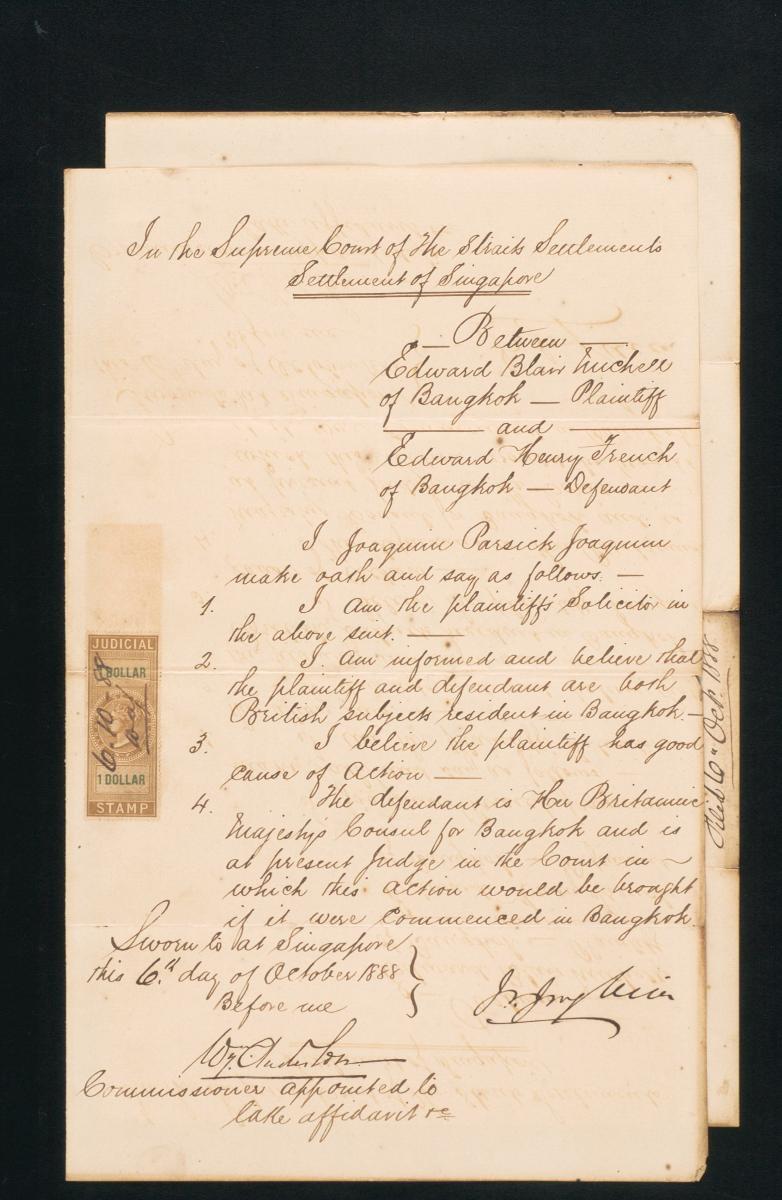 In the Supreme Court of the Straits Settlements
Settlement of Singapore
— Between —
Edward Blair Michell
of Bangkok — Plaintiff
and
Edward Henry French
of Bangkok — Defendant
I Joaquim Parsick Joaquim
make oath and say as follows. —
1. I am the plaintiff's Solicitor in
the above suit. —
2. I am informed and believe that
the plaintiff and defendant are both
British subjects resident in Bangkok. —
3. I believe the plaintiff has good
cause of Action —
4. The defendant is Her Britannic
Majesty's Consul for Bangkok and is
at present Judge in the Court in ~
which this action would be brought
if it were commenced in Bangkok.
Sworn to at Singapore
this 6th day of October 1888
Before me
Wm. Anderson
Commissioner appointed to
take affidavit &c
JUDICIAL
1 DOLLAR
6-10-88
1 DOLLAR
STAMP
6th Oct. 1888